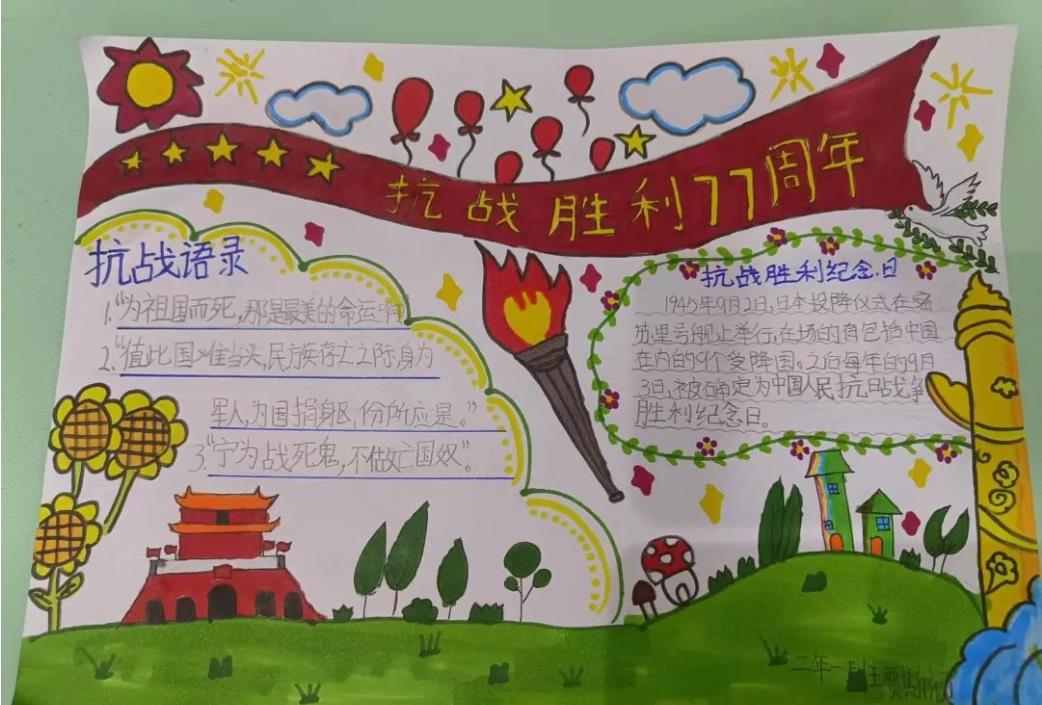 抗战胜利77周年
抗战语录
1.“为祖国而死,那是最美的命运啊
2.“值此国难当头,民族存亡之际,身为
军人,为国捐身区,份所应是。”
3.“宁为战死鬼,不做亡国奴”。
抗战胜利纪念日
1945年9月2日,日本投降仪式在密
苏里号舰上举行,在场的有包括中国
在内的9个受降国。之后每年的9月
3日,被确定为中国人民抗日战争
胜利纪念日。
二年一班